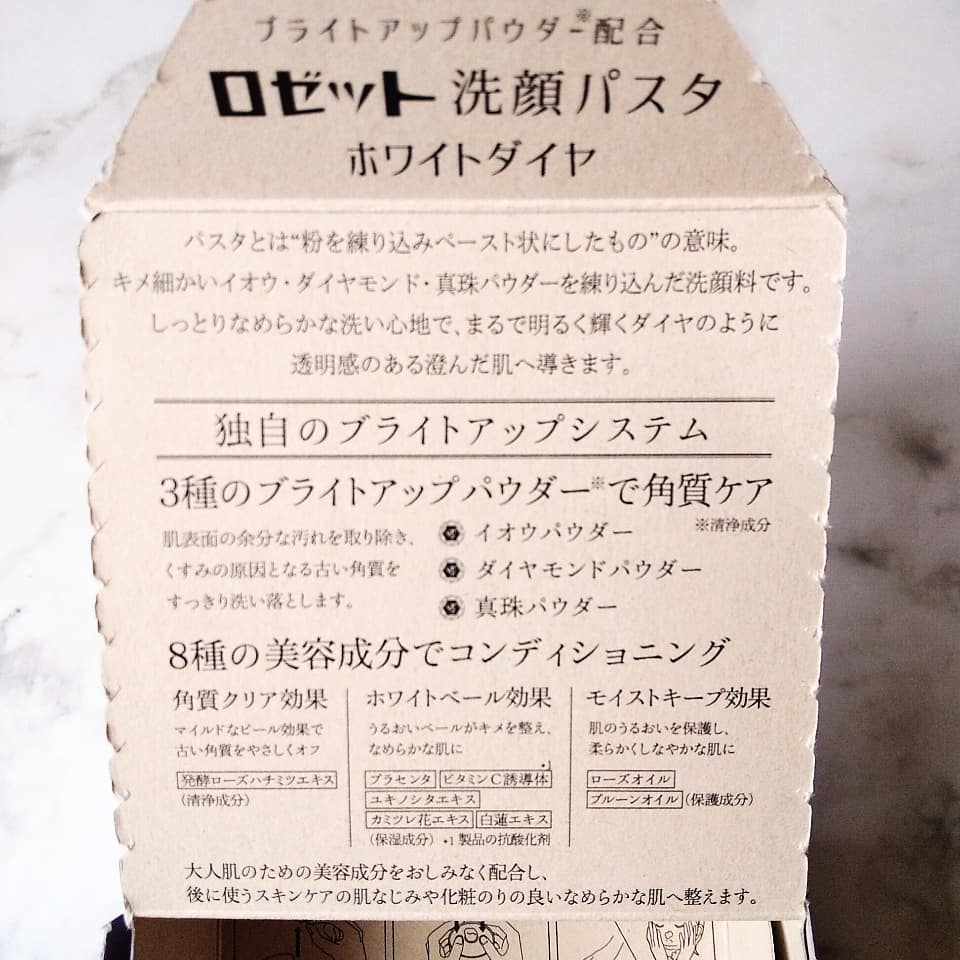 ブライトアップパウダー※配合
ロゼット 洗顔パスタ
ホワイトダイヤ
パスタとは“粉を練り込みペースト状にしたもの”の意味。
キメ細かいイオウ・ダイヤモンド・真珠パウダーを練り込んだ洗顔料です。
しっとりなめらかな洗い心地で、まるで明るく輝くダイヤのように
透明感のある澄んだ肌へ導きます。
独自のブライトアップシステム
3種のブライトアップパウダー※で角質ケア
※清浄成分
肌表面の余分な汚れを取り除き、
くすみの原因となる古い角質を
すっきり洗い落とします。
イオウパウダー
ダイヤモンドパウダー
真珠パウダー
8種の美容成分でコンディショニング
角質クリア効果
マイルドなピール効果で
古い角質をやさしくオフ
発酵ローズハチミツエキス
(清浄成分)
ホワイトベール効果
うるおいベールがキメを整え、
なめらかな肌に
プラセンタ ビタミンC誘導体*1
ユキノシタエキス
カミツレ花エキス 白蓮エキス
(保湿成分) *1 製品の抗酸化剤
モイストキープ効果
肌のうるおいを保護し、
柔らかくしなやかな肌に
ローズオイル
プルーンオイル (保護成分)
大人肌のための美容成分をおしみなく配合し、
後に使うスキンケアの肌なじみや化粧のりの良いなめらかな肌へ整えます。